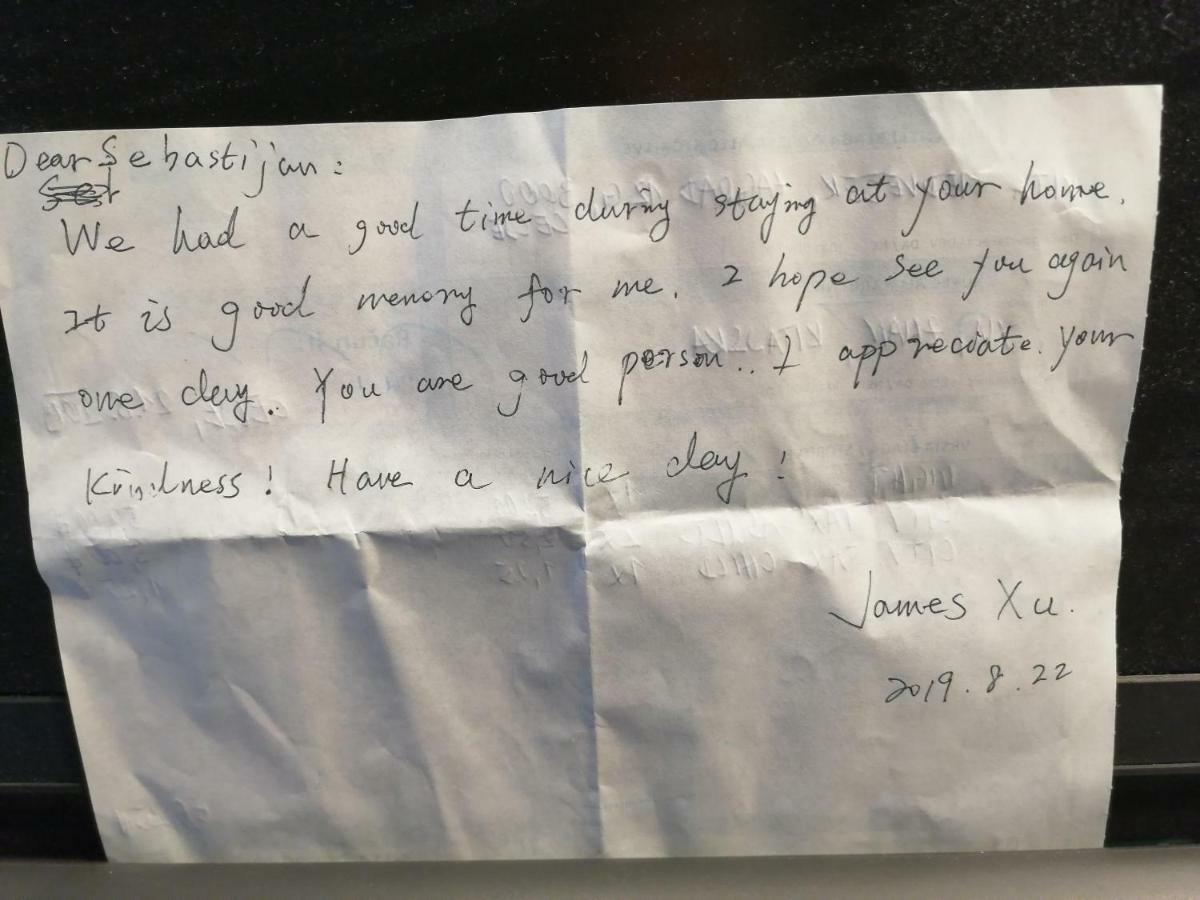 Dear Sebastijan:
We had a good time during staying at your home.
It is good memory for me. I hope see you again
one day. You are good person.. I appreciate your
Kindness! Have a nice day!
James Xu.
2019.8.22